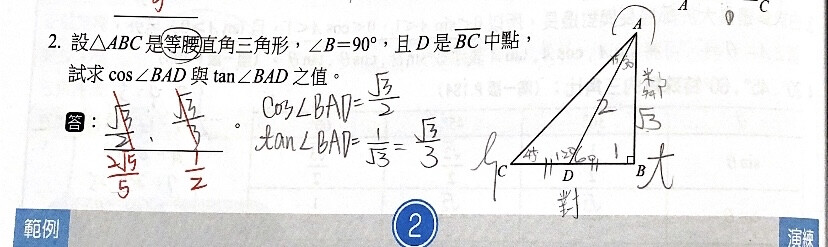 2. 設△ABC是等腰直角三角形，∠B=90°，且D是BC中點，
試求cos∠BAD與tan∠BAD之值。
答：√3/2、√3/3。
2√5/5 1/2
cos∠BAD=√3/2
tan∠BAD=1/√3=√3/3
A
C
A
15 30
2
√3
45 120 60 1
C D B
對
範例
2
演練